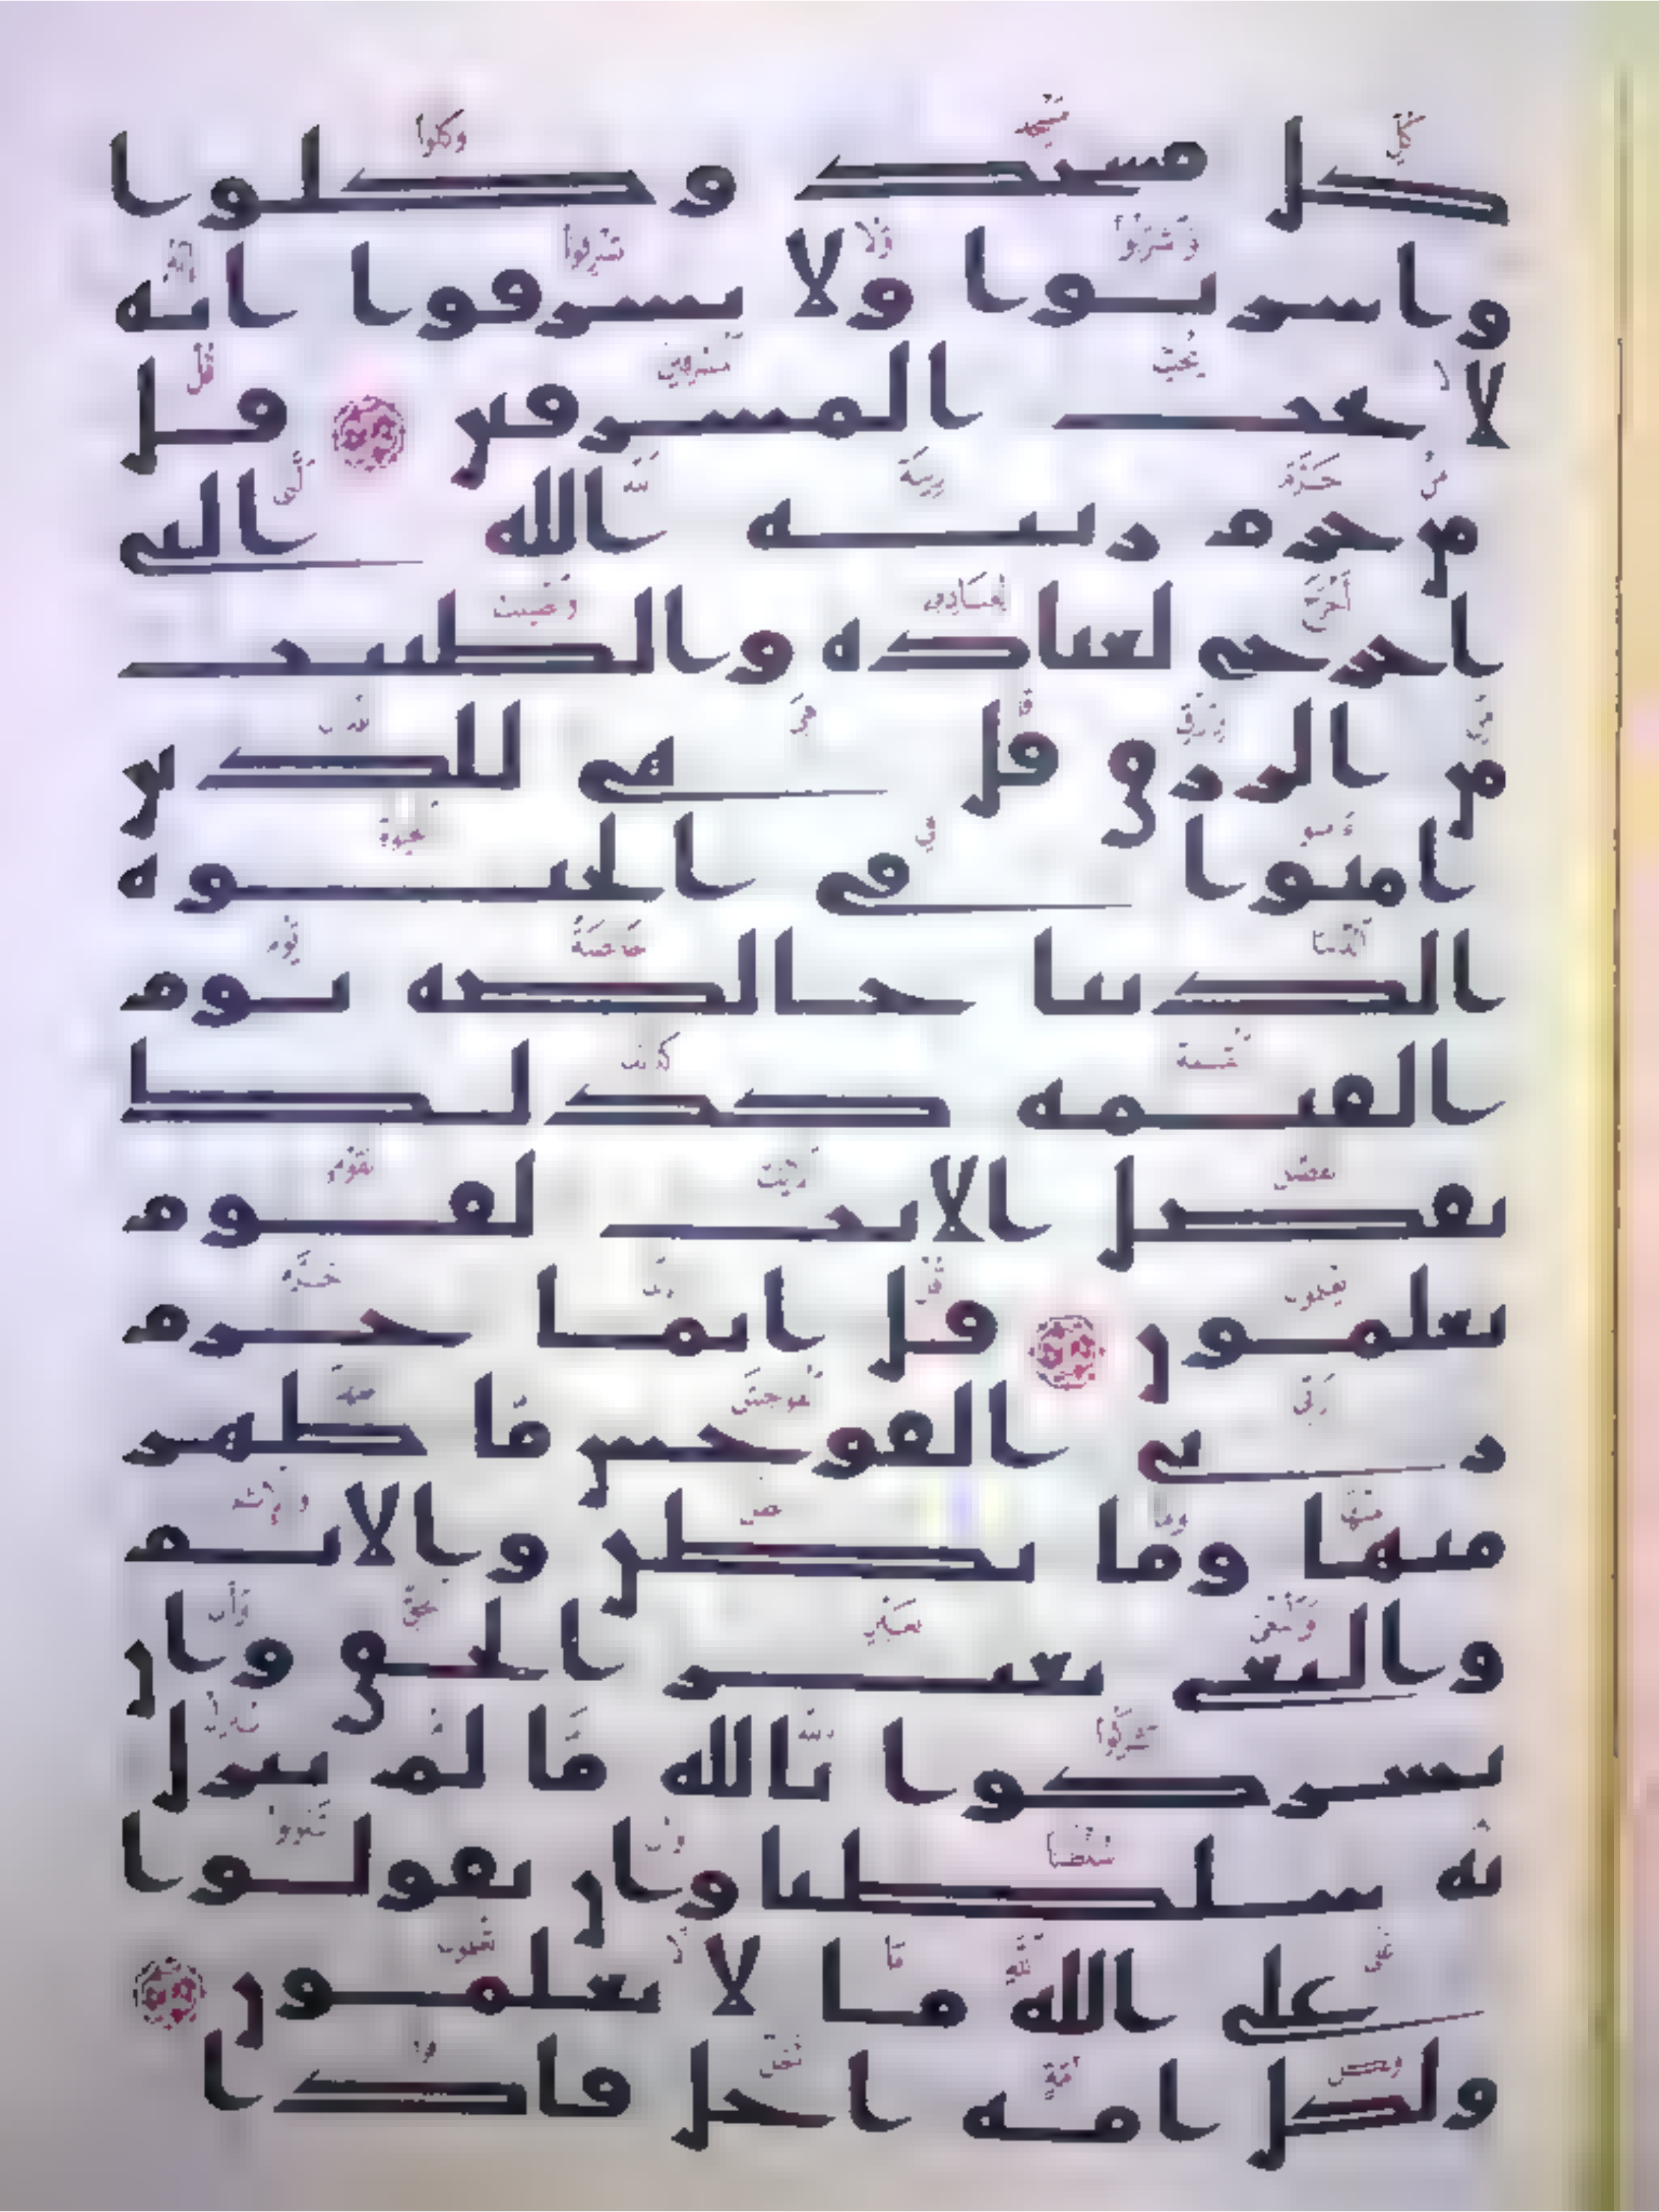 كل مسجد وكلوا
واشربوا ولا تسرفوا انه
لا يحب المسرفين قل
من حرم زينة الله التي
اخرج لعباده والطيبت
من الرزق قل هي للذين
امنوا في الحيوة
الدنيا خالصة يوم
القيمة كذلك
نفصل الايت لقوم
يعلمون قل انما حرم
ربي الفوحش ما ظهر
منها وما بطن والاثم
والبغي بغير الحق وان
تشركوا بالله ما لم ينزل
به سلطنا وان تقولوا
على الله ما لا تعلمون
ولكل امة اجل فاذا